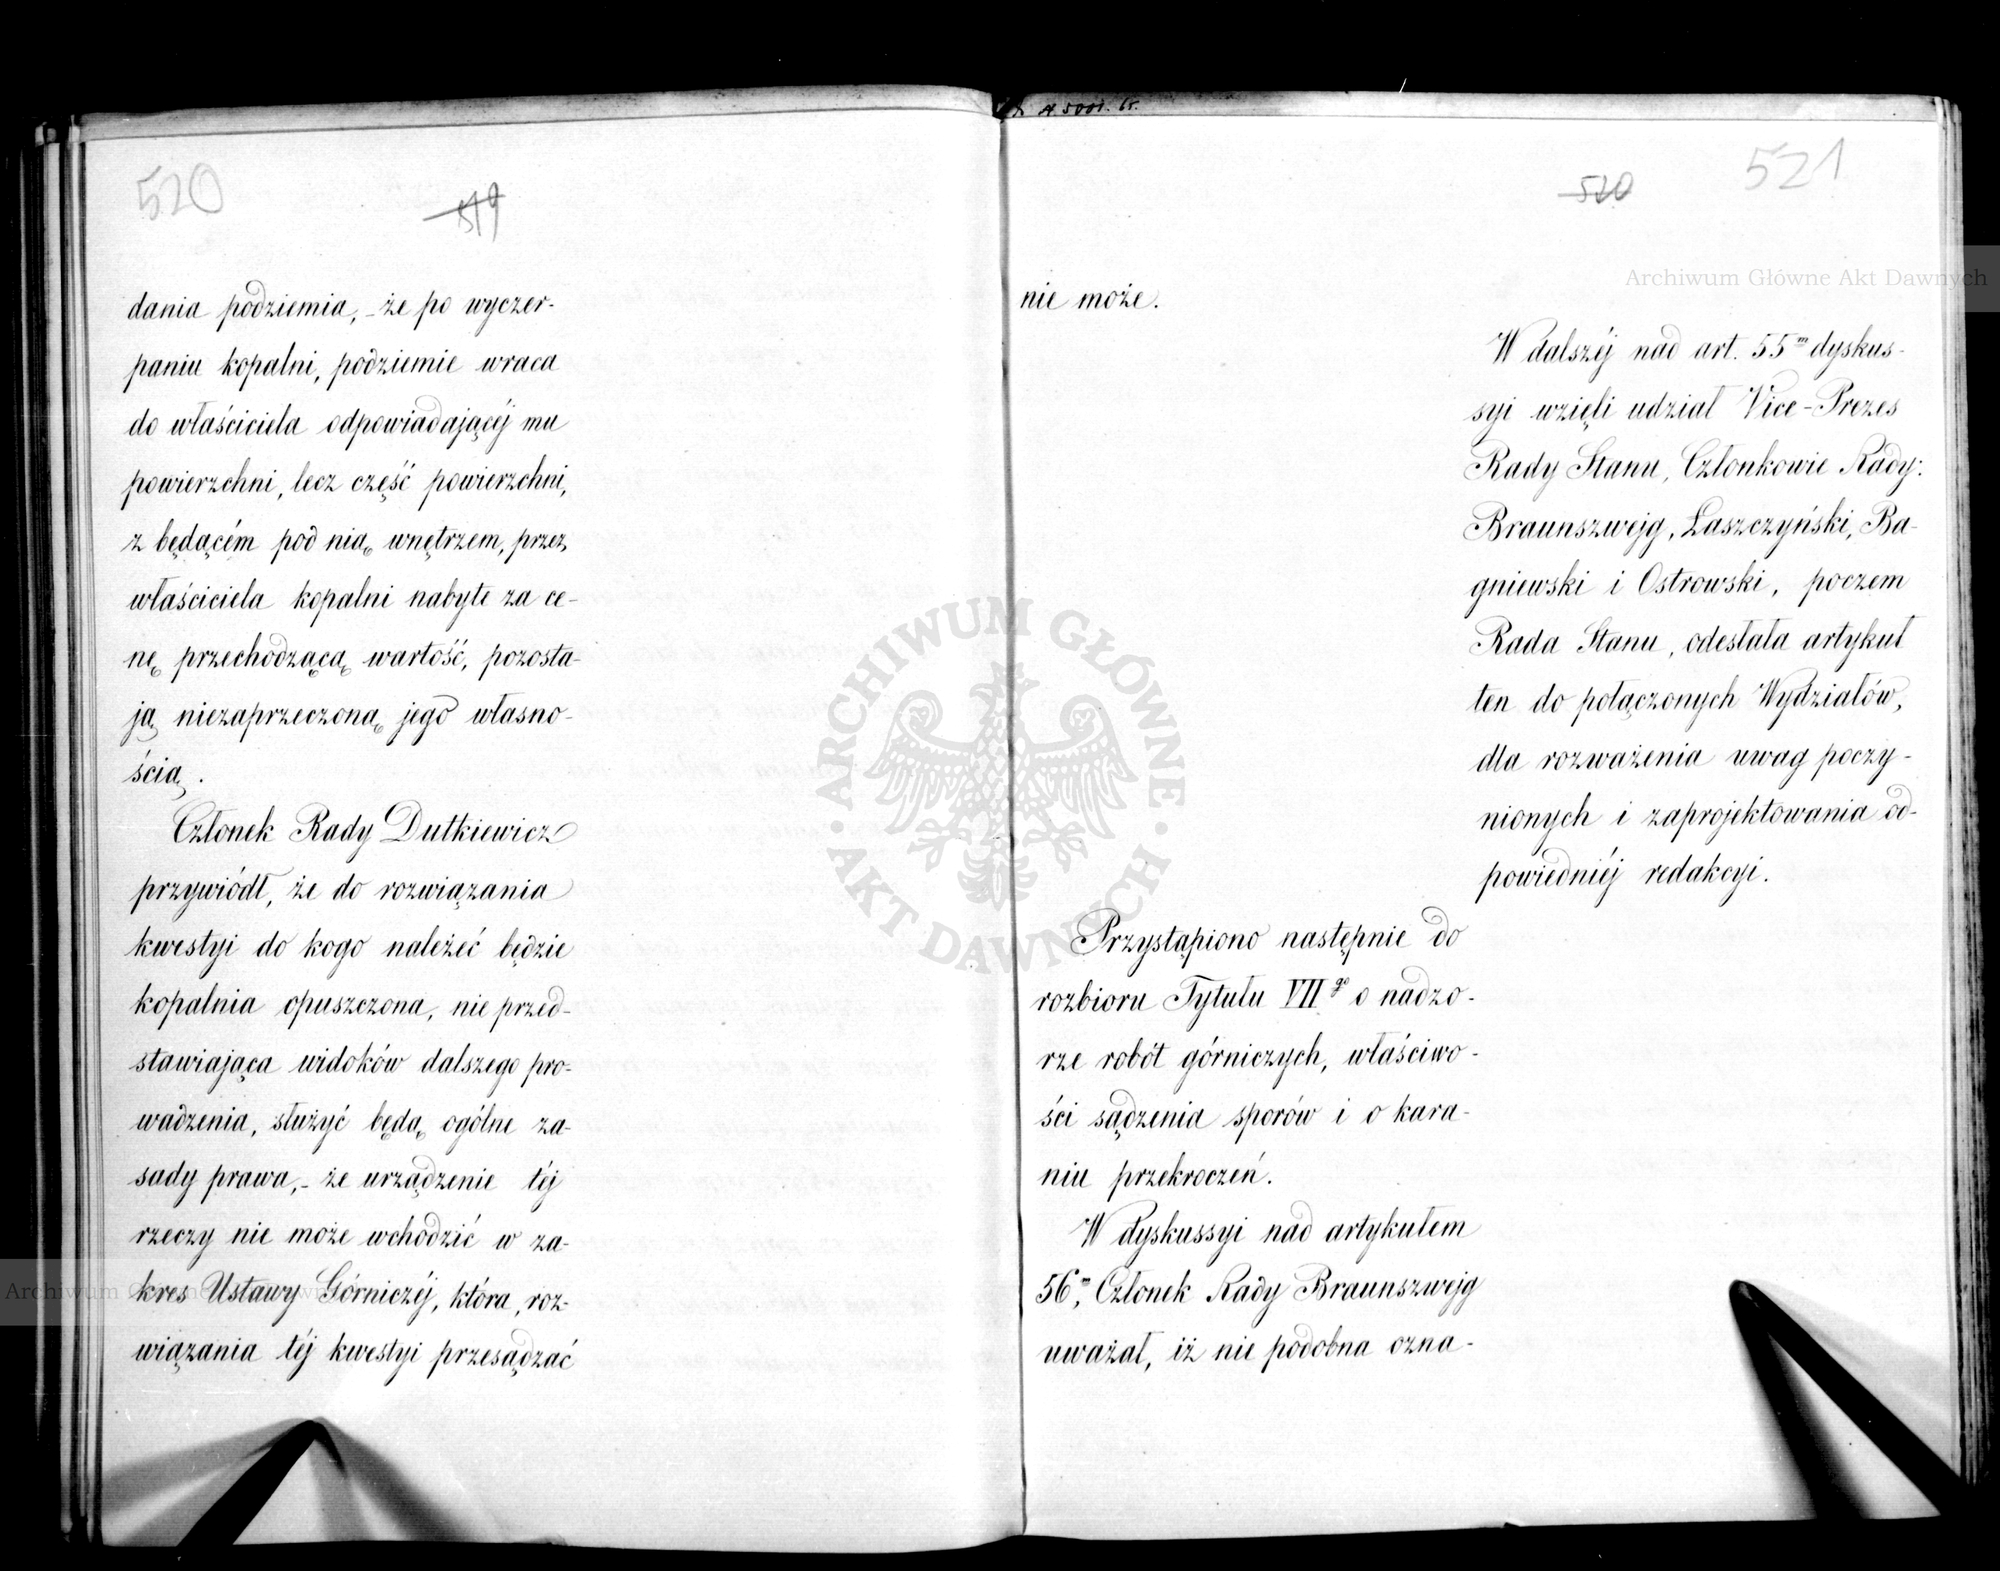 520
519
dania podziemia, - że po wyczer-
paniu kopalni, podziemie wraca
do właściciela odpowiadającéj mu
powierzchni, lecz część powierzchni,
z będącém pod nią wnętrzem, przez
właściciela kopalni nabyte za ce-
nę przechodzącą wartość, pozosta-
ją niezaprzeczoną jego własno-
ścią.
Członek Rady Dutkiewicz
przywiódł, że do rozwiązania
kwestyi do kogo należeć będzie
kopalnia opuszczona, nie przed-
stawiająca widoków dalszego pro-
wadzenia, służyć będą ogólne za-
sady prawa, - że urządzenie téj
rzeczy nie może wchodzić w za-
kres Ustawy Górniczéj, która, roz-
wiązania téj kwestyi przesądzać
521
520
nie może.
W dalszéj nad art. 55m dyskus-
syi wzięli udział Vice-Prezes
Rady Stanu, Członkowie Rady:
Braunszwejg, Łaszczyński, Ba-
gniewski i Ostrowski, poczem
Rada Stanu, odesłała artykuł
ten do połączonych Wydziałów,
dla rozważenia uwag poczy-
nionych i zaprojektowania od-
powiedniéj redakcyi.
Przystąpiono następnie do
rozbioru Tytułu VIIgo o nadzo-
rze robót górniczych, właściwo-
ści sądzenia sporów i o kara-
niu przekroczeń.
W dyskussyi nad artykułem
56m, Członek Rady Braunszwejg
uważał, iż nie podobna ozna-
Archiwum Główne Akt Dawnych
ARCHIWUM GŁÓWNE
AKT DAWNYCH